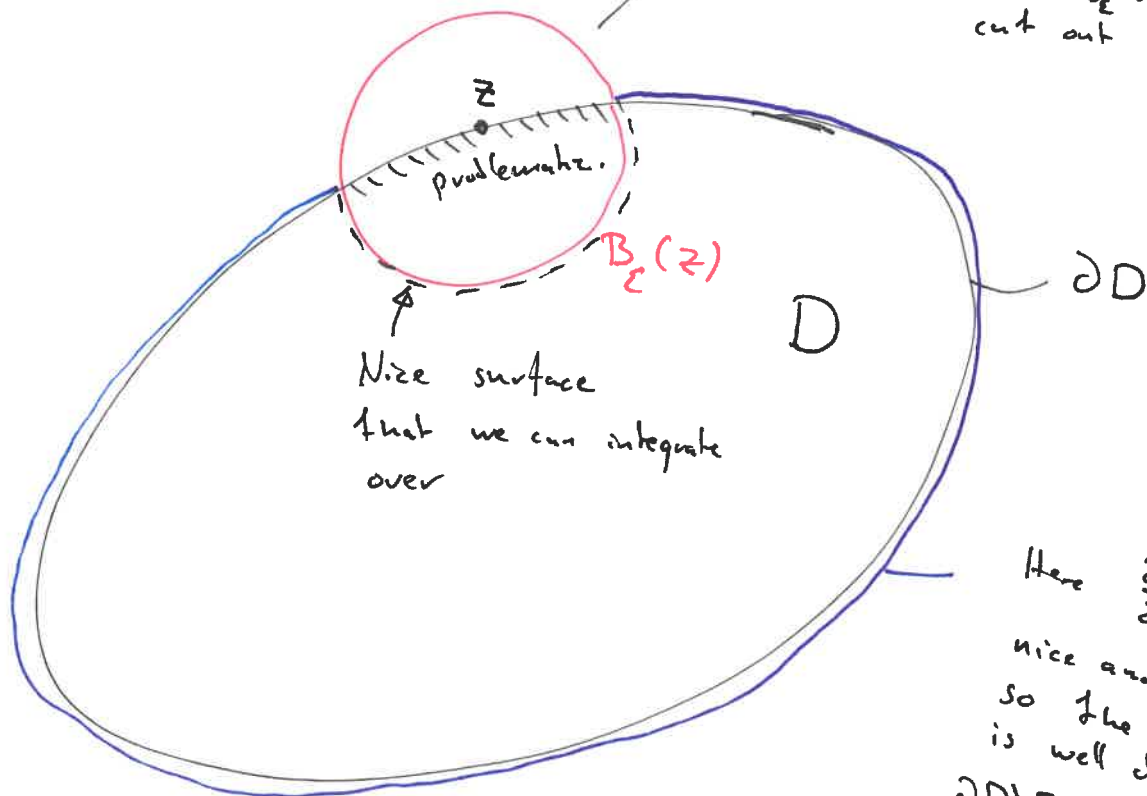 cut out
z
problematic.
B_ε(z)
∂D
D
Nice surface
that we can integrate
over
Here
nice
so the
is well